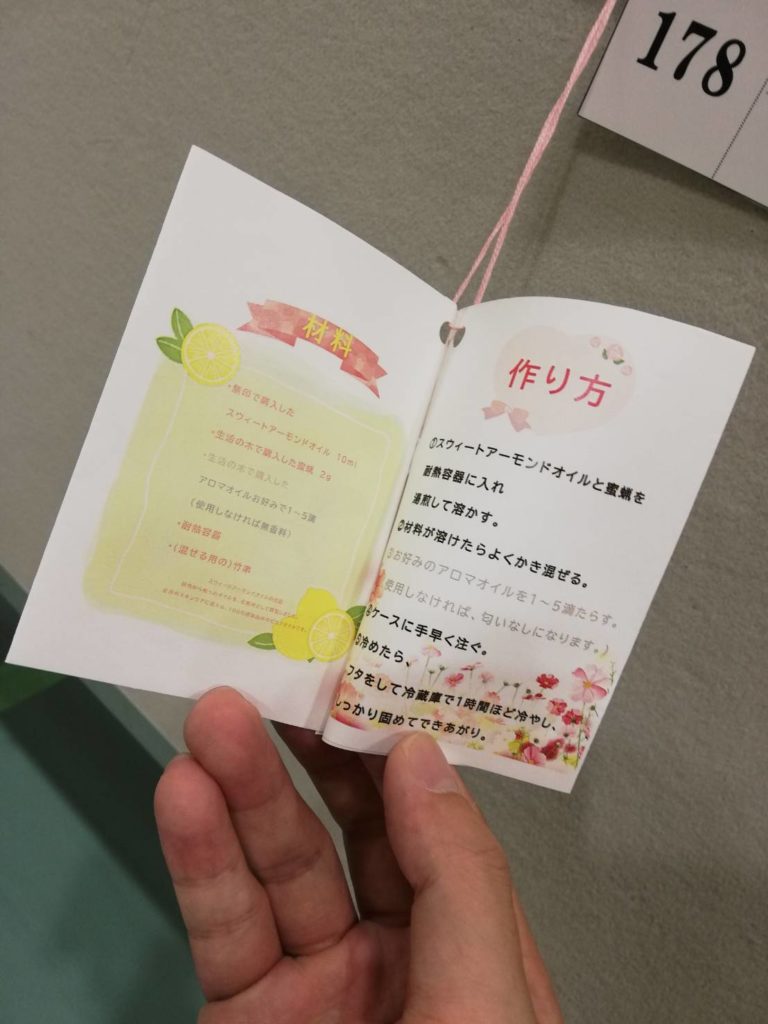 178
材料
・無印で購入した
スウィートアーモンドオイル 10ml
・生活の木で購入した蜜蝋 2g
・生活の木で購入した
アロマオイルお好みで1〜5滴
(使用しなければ無香料)
・耐熱容器
・(混ぜる用の)竹串
作り方
①スウィートアーモンドオイルと蜜蝋を
耐熱容器に入れ
湯煎して溶かす。
②材料が溶けたらよくかき混ぜる。
③お好みのアロマオイルを1〜5滴たらす。
使用しなければ、匂いなしになります。)
④ケースに手早く注ぐ。
⑤冷めたら、
フタをして冷蔵庫で1時間ほど冷やし、
しっかり固めてできあがり。